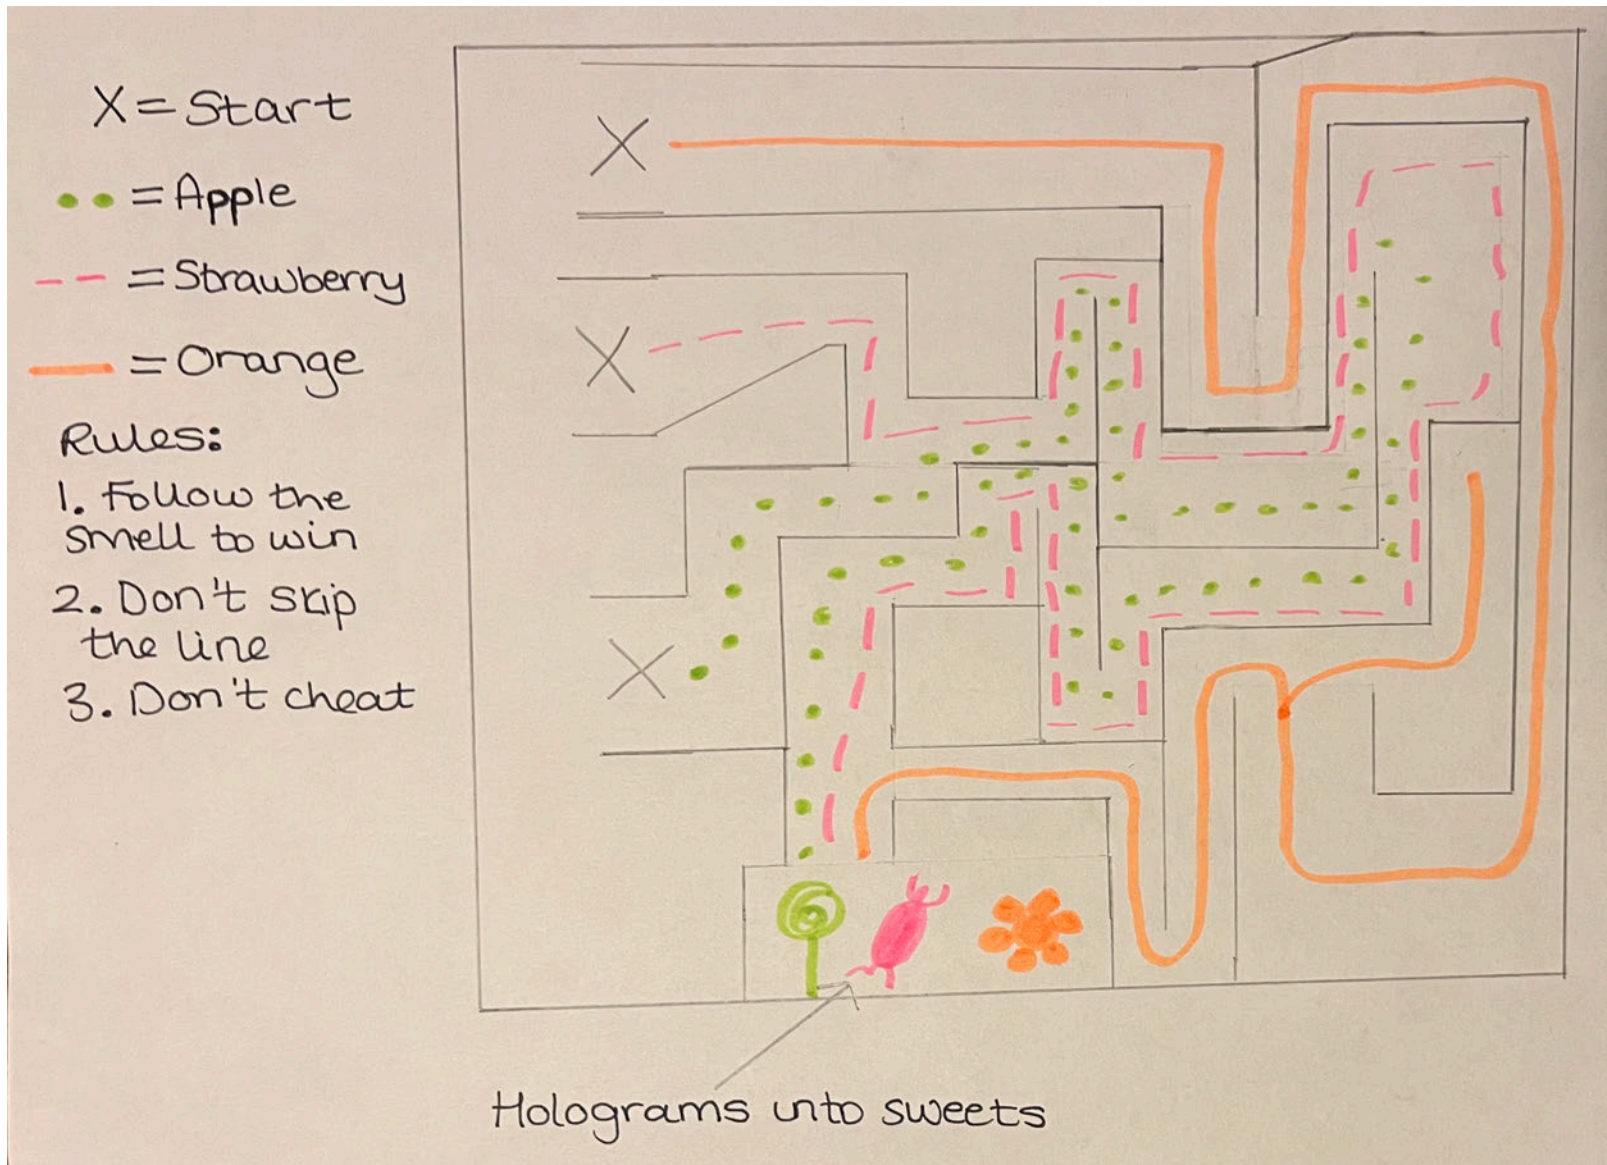 X = Start
= Apple
= Strawberry
= Orange
Rules:
1. Follow the
smell to win
2. Don't skip
the line
3. Don't cheat
X
X
X
Holograms into sweets